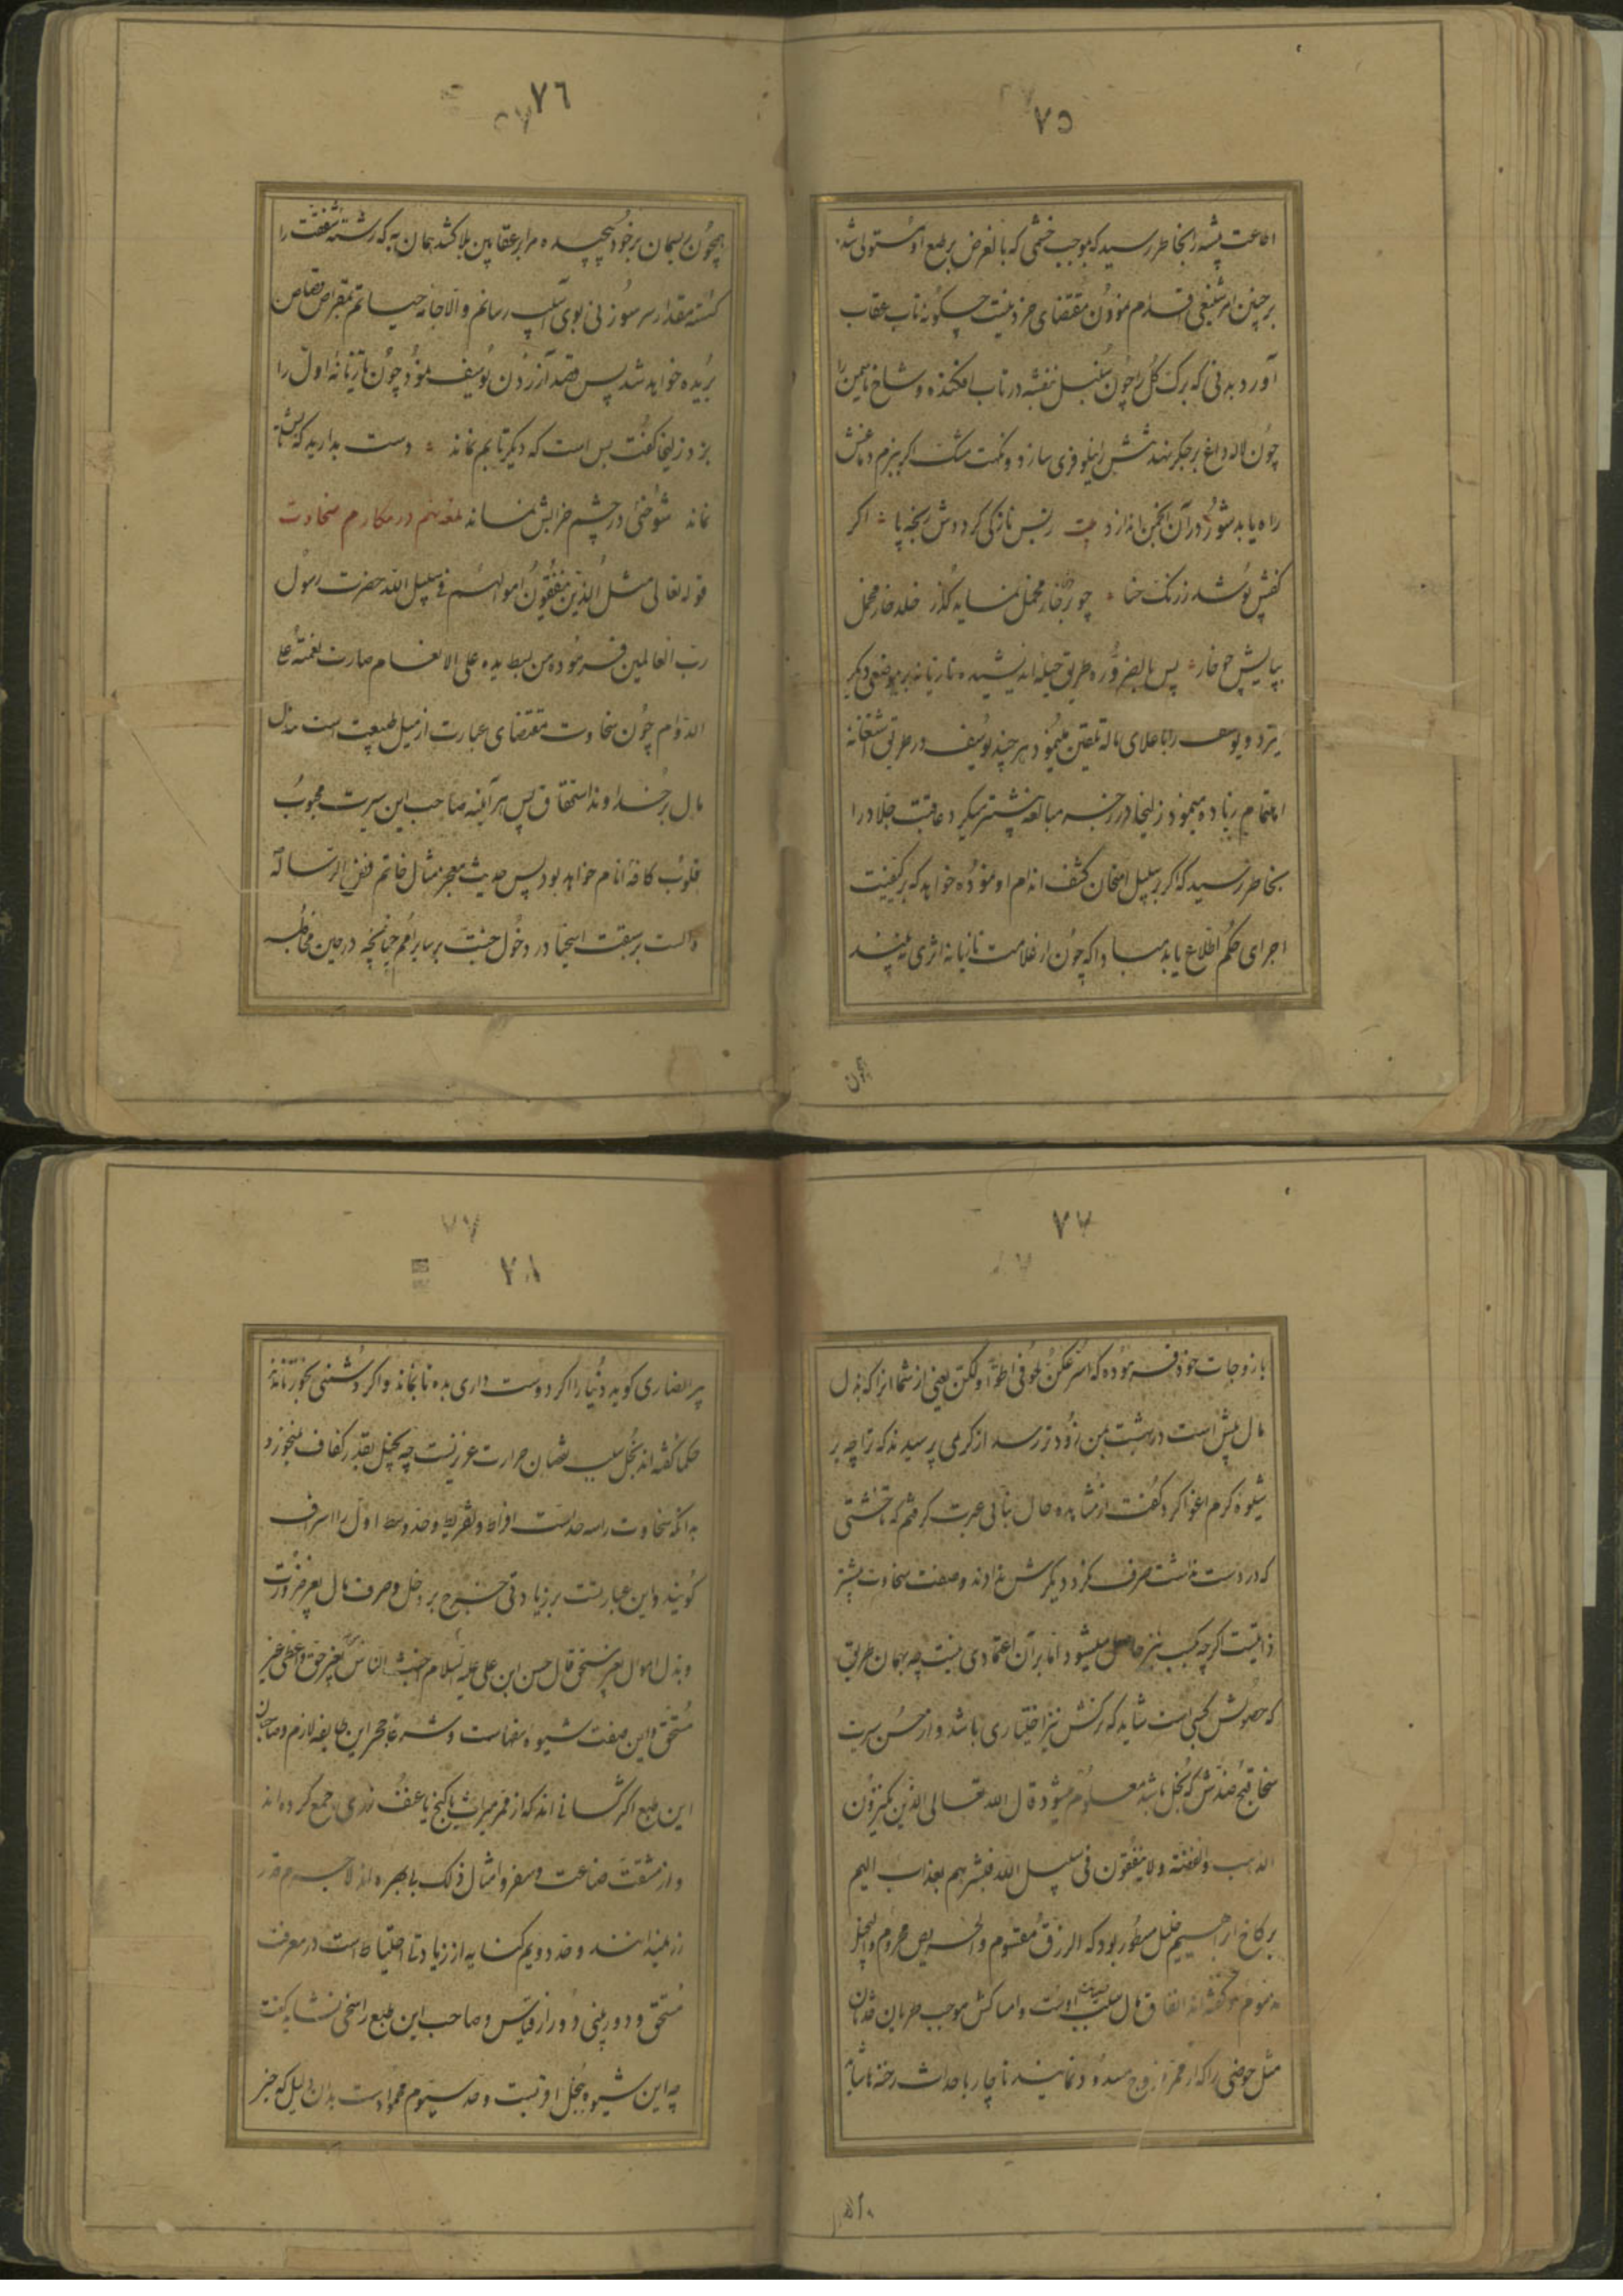 ٧٥
اطاعت پیشه را بخاطر رسید که بموجب خشمی که بالعرض بر طبع او مستولی شد
بر چنین امر شنیعی اقدام نمودن مقتضای خرد نیست چگونه تاب عقاب
آورد بدنی که برک کل را چون سنبل بنفشه در تاب افکنده و شاخ یاسمین را
چون لاله داغ بر جکر نهد نیلوفری سازد و نکهت مشک اکر ببزم دماغش
راه یابد شور در آن انجمن اندازد بیت ز بس نازکی کردوش رنجه پا اکر
کفش پوشد ز رنک حنا چو بر خار مخمل نماید کذر خلد خار مخمل
بپایش چو خار پس بالضروره طریق حیله اندیشیده تازیانه بر موضعی دیکر
میزد و یوسف را باعلای ناله تلقین مینمود هر چند یوسف در طریق استغاثه
اهتمام زیاده مینمود زلیخا در زجر مبالغه بیشتر میکرد عاقبت جلاد را
بخاطر رسید که اکر بر سبیل امتحان کشف اندام او نموده خواهد که بر کیفیت
اجرای حکم اطلاع یابد مبادا که چون از علامت تازیانه اثری نه بیند
همچون
٧٦
همچون ریسمان بر خود پیچیده مرا بر عقابین بلا کشد همان به که رشته شفقت را
کسسته مقدار سر سوزنی بوی آسیب رسانم والا جامه حیاتم بمقراض قصاص
بریده خواهد شد پس قصد آزردن یوسف نمود چون تازیانه اول را
بزد زلیخا کفت بس است که دیکر تابم نماند دست بدارید که تابش
نماند شوخی در چشم خرابش نماند لمعه نهم در مکارم سخاوت
قوله تعالی مثل الذین ینفقون اموالهم فی سبیل الله حضرت رسول
رب العالمین فرموده من بسط یده علی الانعام صارت نعمته علی
الدوام چون سخاوت بمقتضای عبارت از میل طبیعت است ببذل
مال بر خداوند استحقاق پس هر آینه صاحب این سیرت محبوب
قلوب کافه انام خواهد بود پس حدیث معجز مثال خاتم فص الرسالة
دالست بر سبقت اسخیا در دخول جنت بر سایر امم چنانچه در حین مخاطبه
٧٧
با زوجات خود فرموده که اسرعکن لحوقا بی اطولکن یعنی از شما انرا که بذل
مال بیش است در بهشت بمن زودتر رسد از کریمی پرسیدند که ترا چه بر
شیوه کرم اغوا کرد کفت از مشاهده حال بنائی عبرت کرفتم که تا خشتی
که در دست داشت صرف نکرد دیکرش ندادند و صفت سخاوت بیشتر
ذاتیست اکر چه بکسب نیز حاصل میشود اما بر آن اعتمادی نیست چه بهمان طریق
که حصولش کسبی است شاید که ترکش نیز اختیاری باشد و از حسن سیرت
سخا قبح ضدش که بخل باشد معلوم میشود قال الله تعالی الذین یکنزون
الذهب والفضة ولا ینفقون فی سبیل الله فبشرهم بعذاب الیم
بر کاخ ابراهیم خلیل مسطور بود که الرزق مقسوم والحریص محروم والبخیل
مذموم و کفته اند انفاق مال سبب اوست و امساکش موجب طریان فقدان
مثل حوضی را که از ممر خروج مسدود نمایند ناچار باحداث رخنه ها شاید
٧٨
پیر انصاری کوید دنیا را اکر دوست داری بده تا بماند و اکر دشمنی بخور تا نماند
حکما کفته اند بخل سبب نقصان حرارت عزیزیست چه بخیل بقدر کفاف نمیخورد
بدانکه سخاوت را سه حد است افراط و تفریط و حد وسط اول را اسراف
کویند و این عبارتست بر زیادتی خرج بر دخل و صرف مال بغیر ضرورت
و بذل اموال بغیر مستحق قال حسن ابن علی علیه السلام الناس بغیر حق واعطی غیر
مستحق و این صفت شیوه سفهاست و شرعا حجر این طایفه لازم و صاحبان
این طبع اکثر کسانی اند که از ممر میراث یا کنج یا عنف زری جمع کرده اند
و از مشقت صناعت و سفر و امثال ذلک بی بهره اند لاجرم قدر
زر نمیدانند و حد دویم کنایه از زیادتی احتیاط است در معرفت
مستحق و دوربینی دور از قیاس و صاحب این طبع را سخی نشاید کفت
چه این شیوه ببخل اقربست و حد سیوم محمود است بدان دلیل که خیر